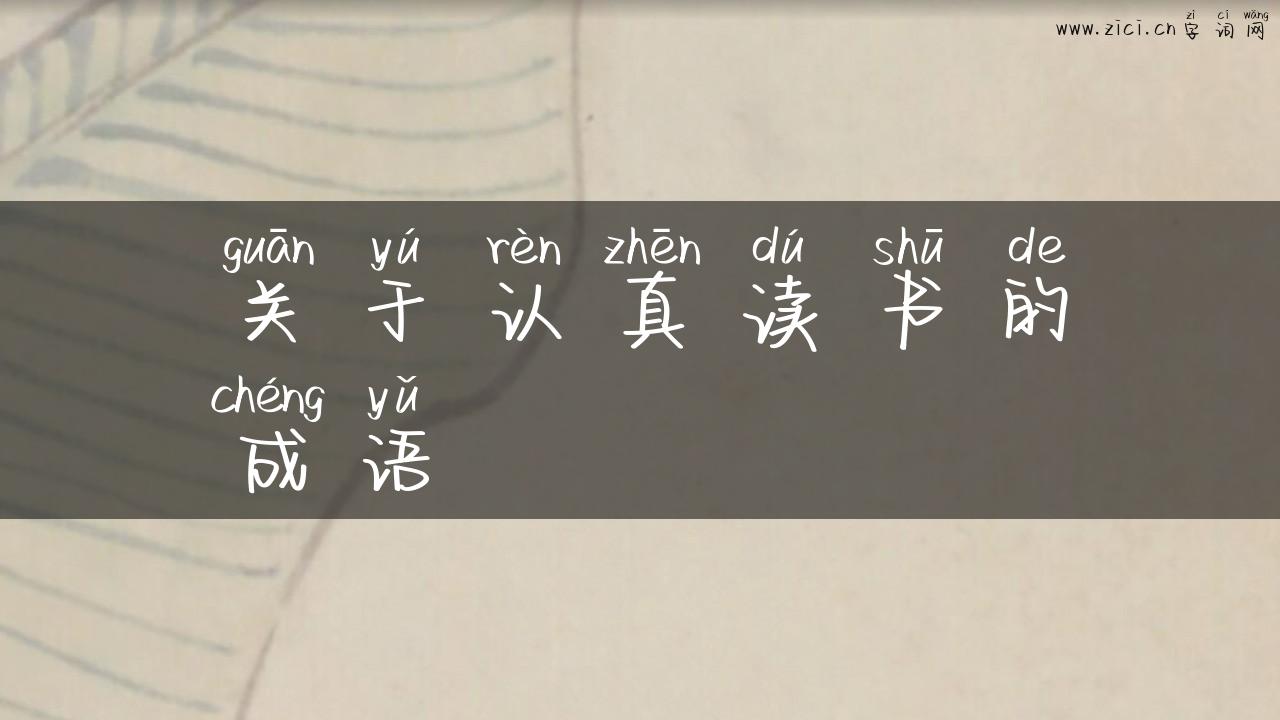 zì cí wǎng
www.zici.cn 字 词 网
guān yú rèn zhēn dú shū de
关 于 认 真 读 书 的
chéng yǔ
成 语